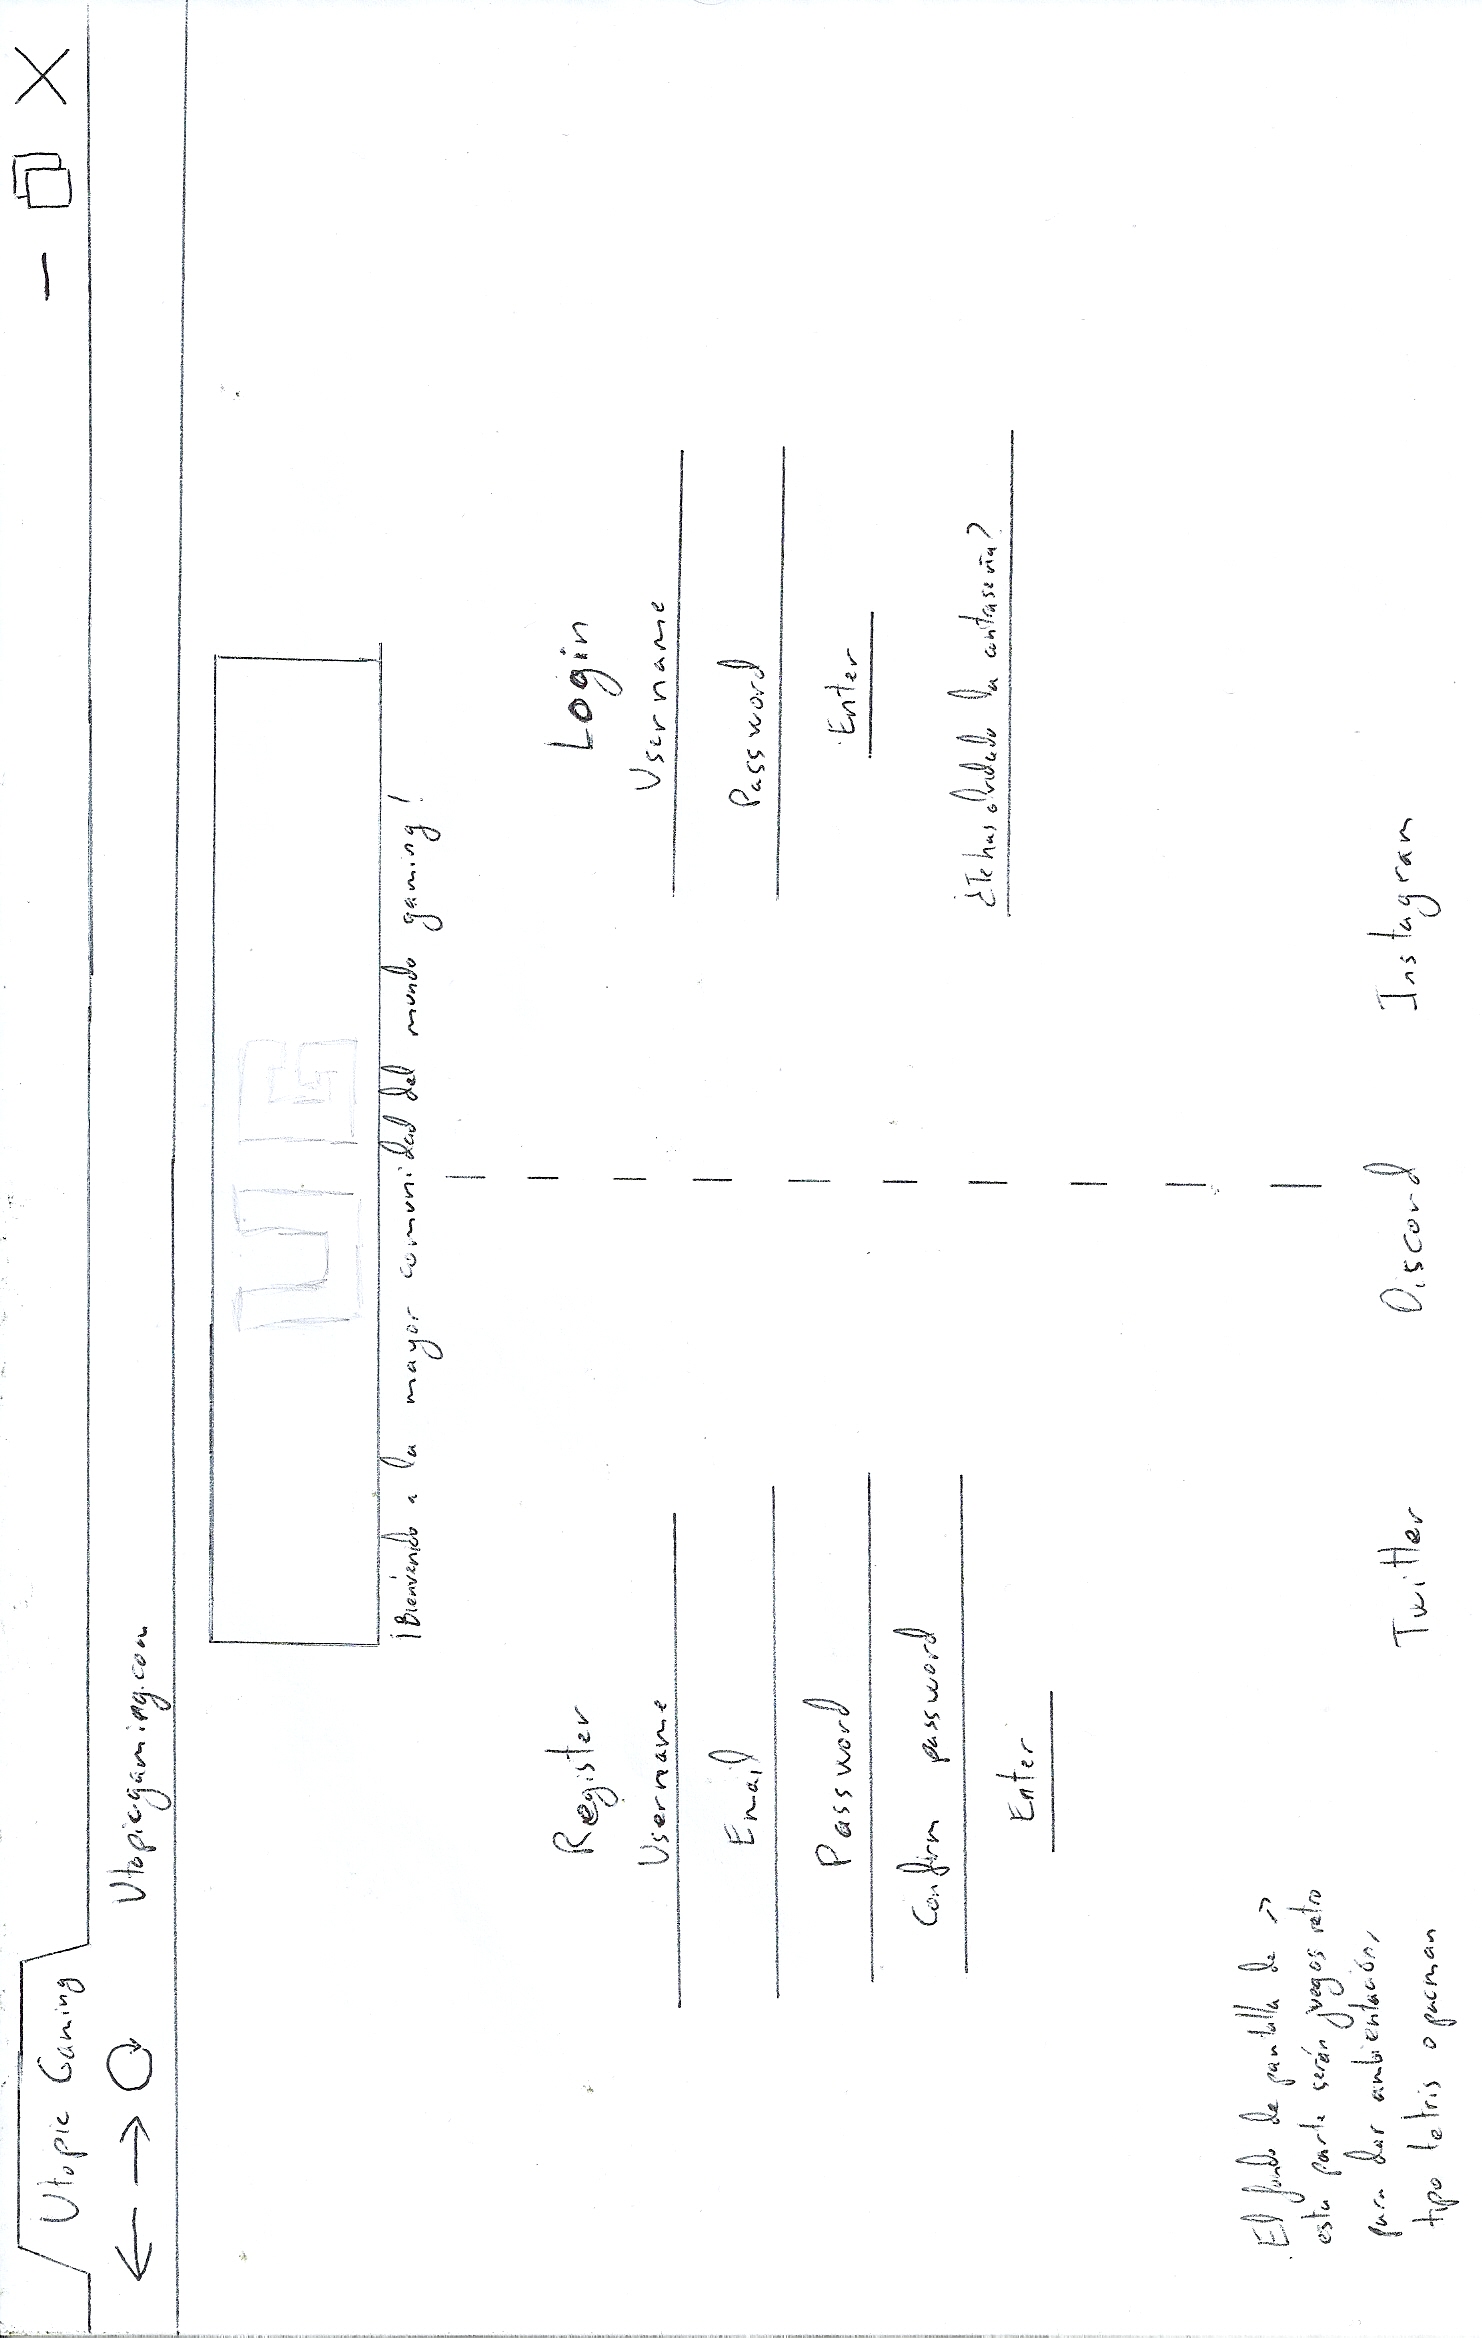 Utopic Gaming
Utopicgaming.com
UG
¡Bienvenido a la mayor comunidad del mundo gaming!
Register
Username
Email
Password
Confirm password
Enter
Login
Username
Password
Enter
¿Te has olvidado la contraseña?
El fondo de pantalla de
esta parte serán juegos retro
para dar ambientación,
tipo tetris o pacman
Twitter
Discord
Instagram